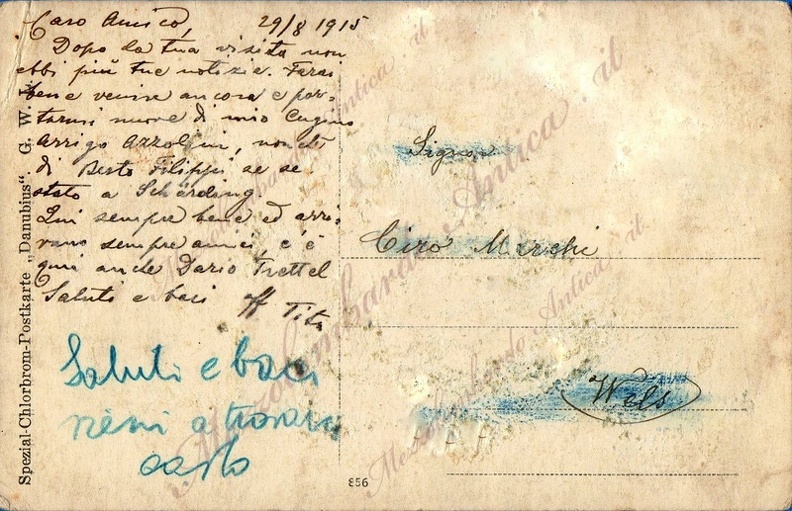 Caro Amico, 29/8 1915
Dopo la tua visita non
ebbi più tue notizie. Farai
bene venire ancora e por-
tarmi nuove di mio Cugino
Arrigo Azzolini, nonchè
di Berto Filippi se se
stato a Schärding.
Qui sempre bene ed arri-
vano sempre amici, c'è
qui anche Dario Trettel
Saluti e baci Tito
Saluti e baci
vieni a trovarci
Carlo
Signor
Ciro Marchi
Wels
856
Spezial-Chlorbrom-Postkarte „Danubius“. G. W. I.
Mezzolombardo Antica . it
Mezzolombardo Antica . it
Mezzolombardo Antica . it